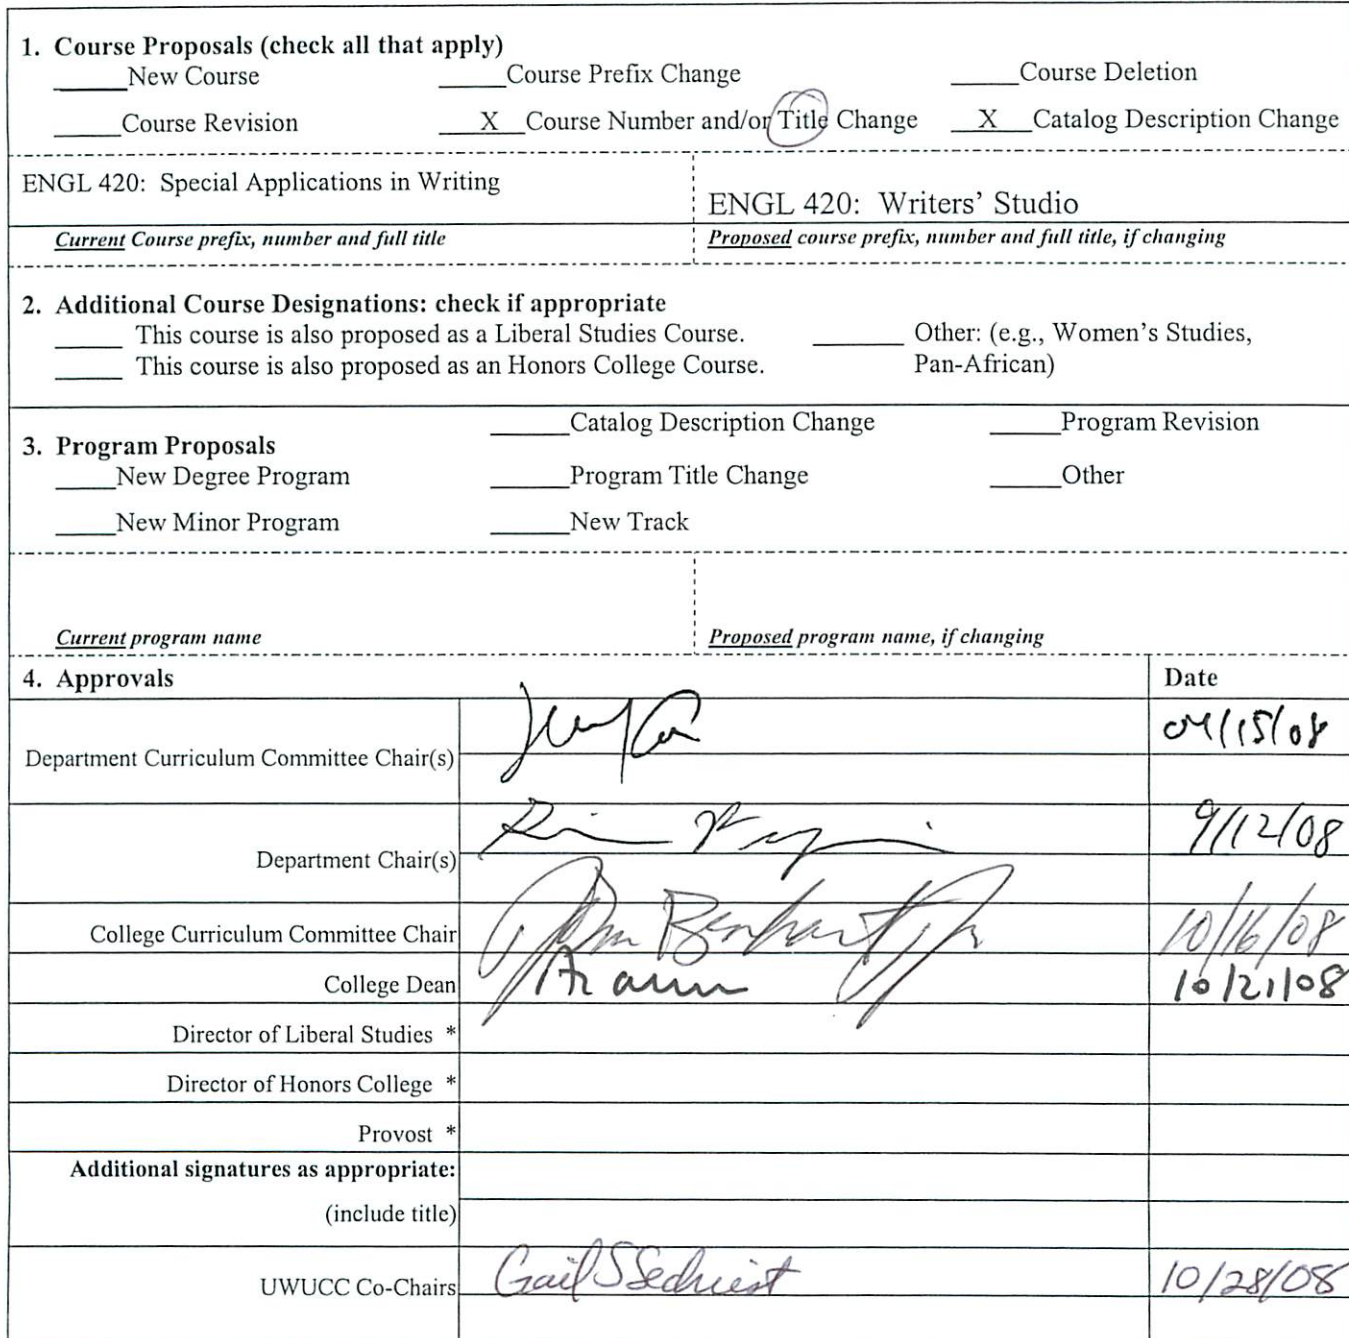 1. Course Proposals (check all that apply)
_____New Course _____Course Prefix Change _____Course Deletion
_____Course Revision __X__Course Number and/or Title Change __X__Catalog Description Change
ENGL 420: Special Applications in Writing
ENGL 420: Writers' Studio
Current Course prefix, number and full title
Proposed course prefix, number and full title, if changing
2. Additional Course Designations: check if appropriate
_____ This course is also proposed as a Liberal Studies Course. _____ Other: (e.g., Women's Studies,
_____ This course is also proposed as an Honors College Course. Pan-African)
_____Catalog Description Change _____Program Revision
3. Program Proposals
_____New Degree Program _____Program Title Change _____Other
_____New Minor Program _____New Track
Current program name
Proposed program name, if changing
4. Approvals Date
Department Curriculum Committee Chair(s) 04/15/08
Department Chair(s) 9/12/08
College Curriculum Committee Chair John Benhart, Jr. 10/16/08
College Dean 10/21/08
Director of Liberal Studies *
Director of Honors College *
Provost *
Additional signatures as appropriate:
(include title)
UWUCC Co-Chairs Gail S Sechrist 10/28/08